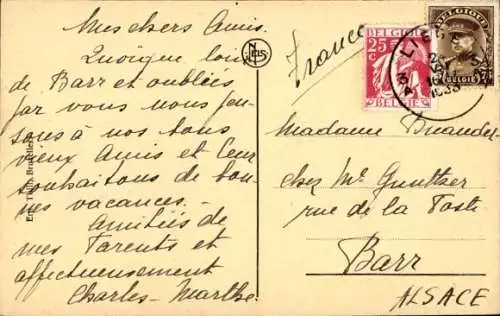 Mes chers Amis.
Quoique loin
de Barr et oubliés
par vous nous pen-
sons à nos bons
vieux Amis et leur
souhaitons de bon-
nes vacances. -
Amitiés de
mes Parents et
affectueusement
Charles-Marthe.
Thill, Bruxelles
NELS
France
25c BELGIQUE
BELGIE
BELGIQUE
BELGIE
LIE
Madame
chez Mr
rue de la Poste
Barr
ALSACE